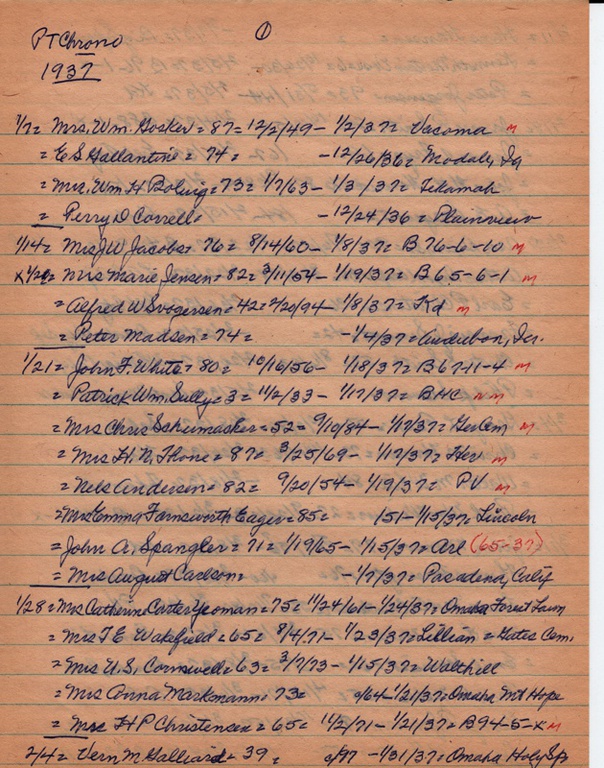 PT Chrono ①
1937
1/7 = Mrs. Wm. Gosker = 87 = 12/2/49 - 1/2/37 = Vacoma M
= E S Gallantine = 74 = - 12/26/36 = Modale, Ia
= Mrs. Wm H Bolwig = 73 = 1/7/63 - 1/3/37 = Tekamah
= Perry D Correll = - 12/24/36 = Plainview
1/14 = Mrs J W Jacobs = 76 = 8/14/60 - 1/8/37 = B 76-6-10 M
x 1/20 = Mrs Marie Jensen = 82 = 3/11/54 - 1/19/37 = B 65-6-1 M
= Alfred W Svogersen = 42 = 2/20/94 - 1/8/37 = Kd M
= Peter Madsen = 74 = - 1/4/37 = Audubon, Ia.
1/21 = John F. White = 80 = 10/16/56 - 1/18/37 = B 67-11-4 M
= Patrick Wm. Sully = 3 = 11/2/33 - 1/17/37 = BHC M M
= Mrs Chris Schumacher = 52 = 9/10/84 - 1/17/37 = Ger Cem M
= Mrs H. N. Thone = 87 = 3/25/69 - 1/17/37 = Her M
= Nels Andersen = 82 = 9/20/54 - 1/19/37 = PV M
= Mrs Emma Farnsworth Eager = 85 = /51 - 1/15/37 = Lincoln
= John A. Spangler = 71 = 1/19/65 - 1/15/37 = Arl (65-37)
= Mrs August Carlson = - 1/7/37 = Pasadena, Calif
1/28 = Mrs Catherine Carter Yeoman = 75 = 11/24/61 - 1/24/37 = Omaha Forest Lawn
= Mrs T E Wakefield = 65 = 8/4/71 - 1/23/37 = Lillian = Gates Cem.
= Mrs U.S. Cornwell = 63 = 3/7/73 - 1/15/37 = Walthill
= Mrs Anna Markmann = 73 = 0/64 - 1/21/37 = Omaha Mt Hope
= Mrs H P Christensen = 65 = 11/2/71 - 1/21/37 = B 94-5-x M
2/4 = Vern M Galliard = 39 = 0/97 - 1/31/37 = Omaha Holy Sp